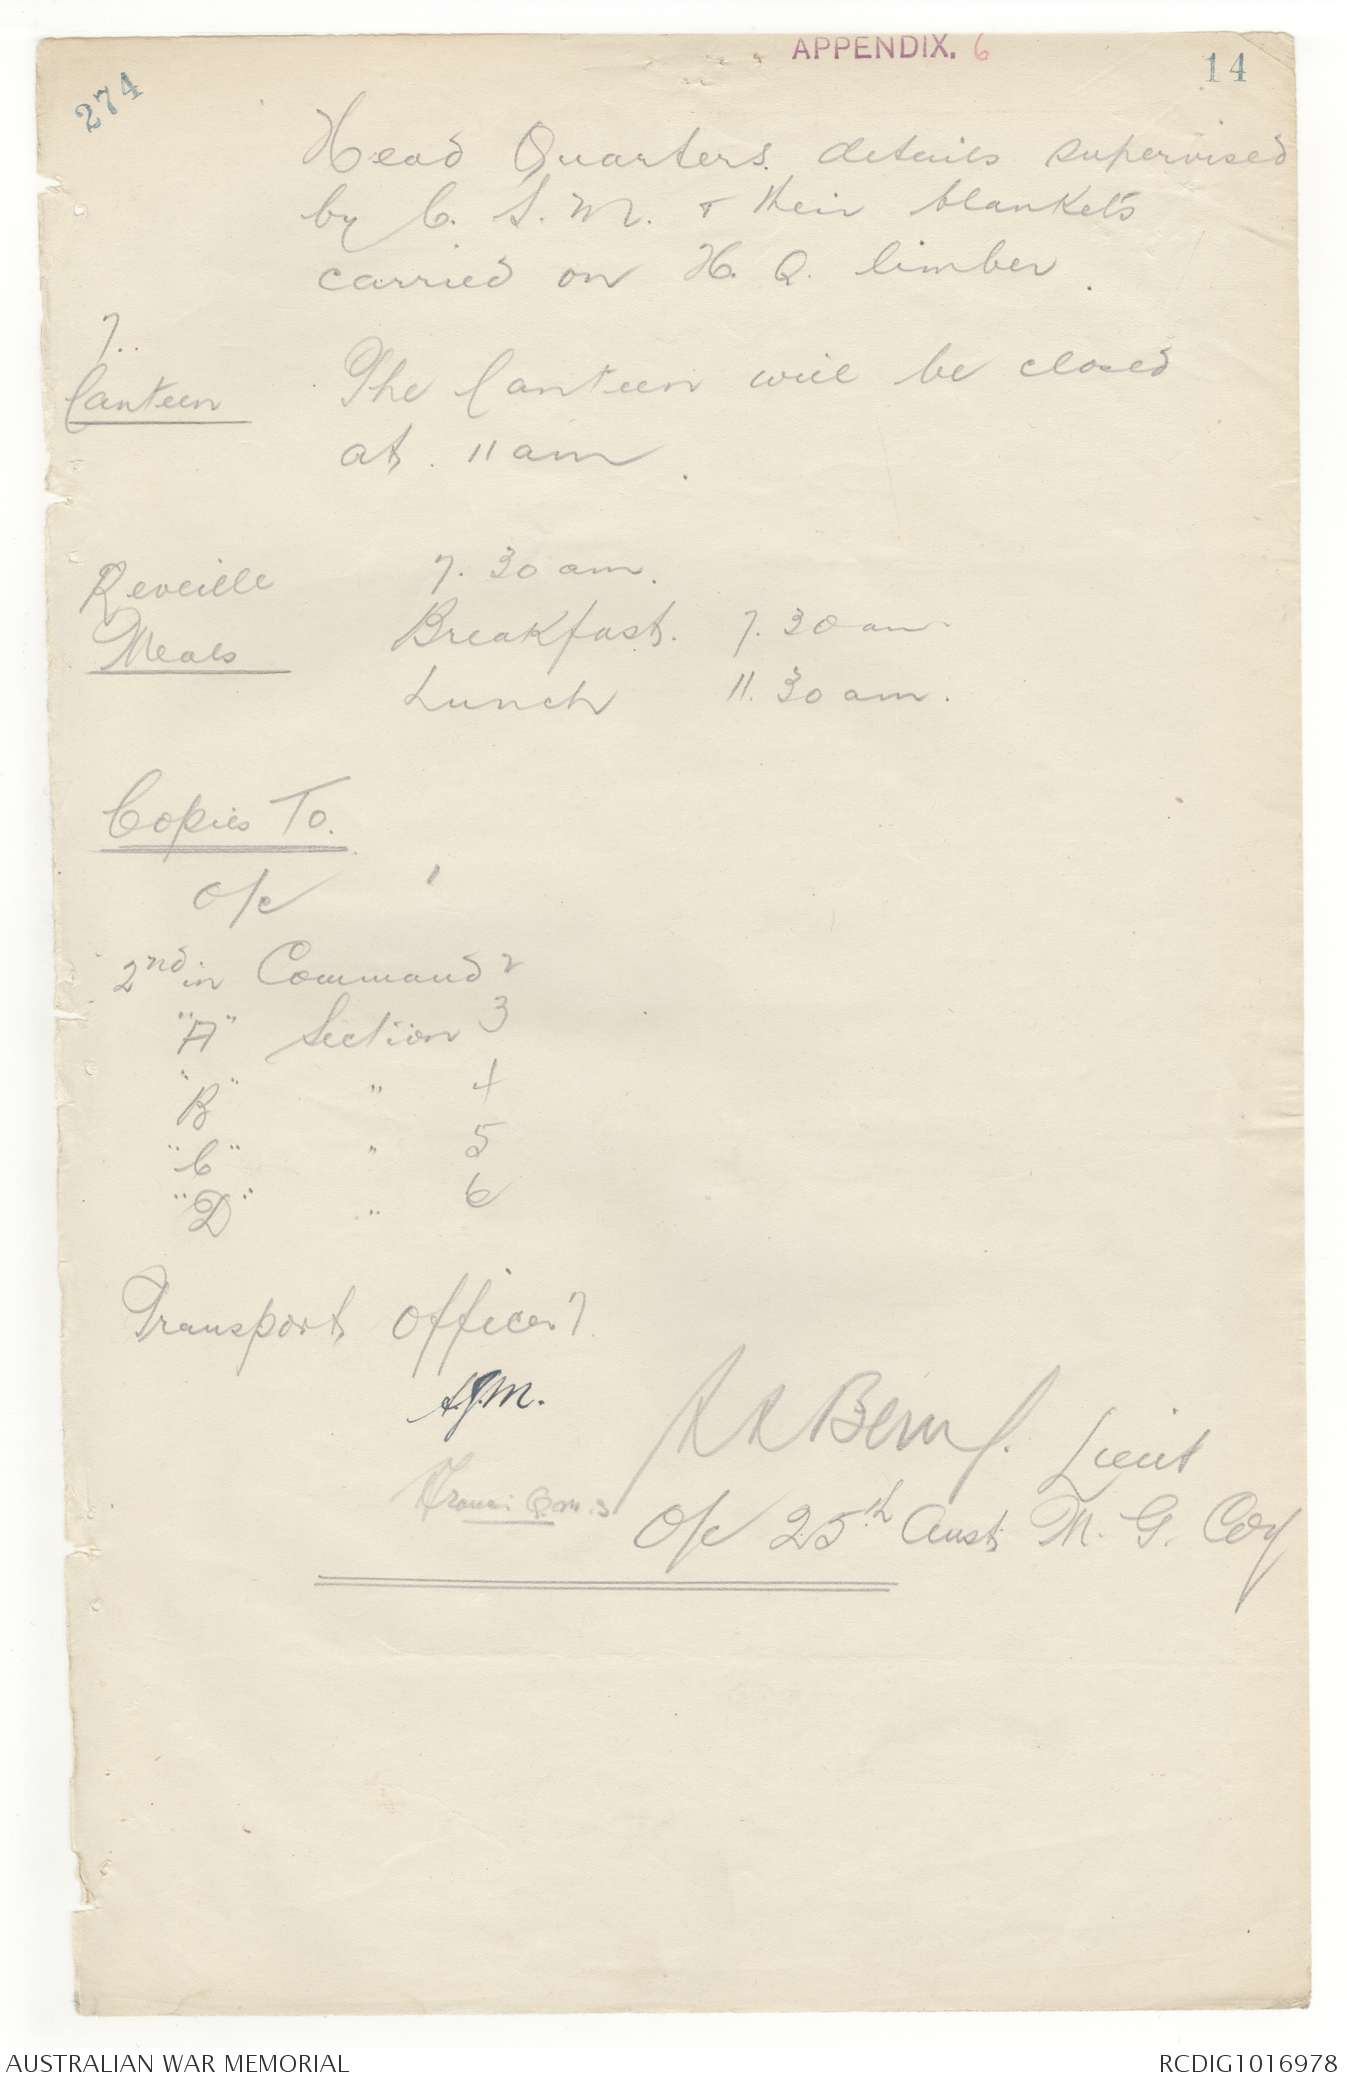 APPENDIX. 6
14
274
Head Quarters details supervised
by C. S. M. & their blankets
carried on H. Q. limber.
7.
Canteen The Canteen will be closed
at 11 am.
Reveille 7. 30 am.
Meals Breakfast. 7. 30 am.
Lunch 11. 30 am.
Copies To.
O/c 1
2nd in Command 2
"A" Section 3
"B" " 4
"C" " 5
"D" " 6
Transport Officer 7.
Lieut
O/c 25th Aust M. G. Coy
AUSTRALIAN WAR MEMORIAL
RCDIG1016978